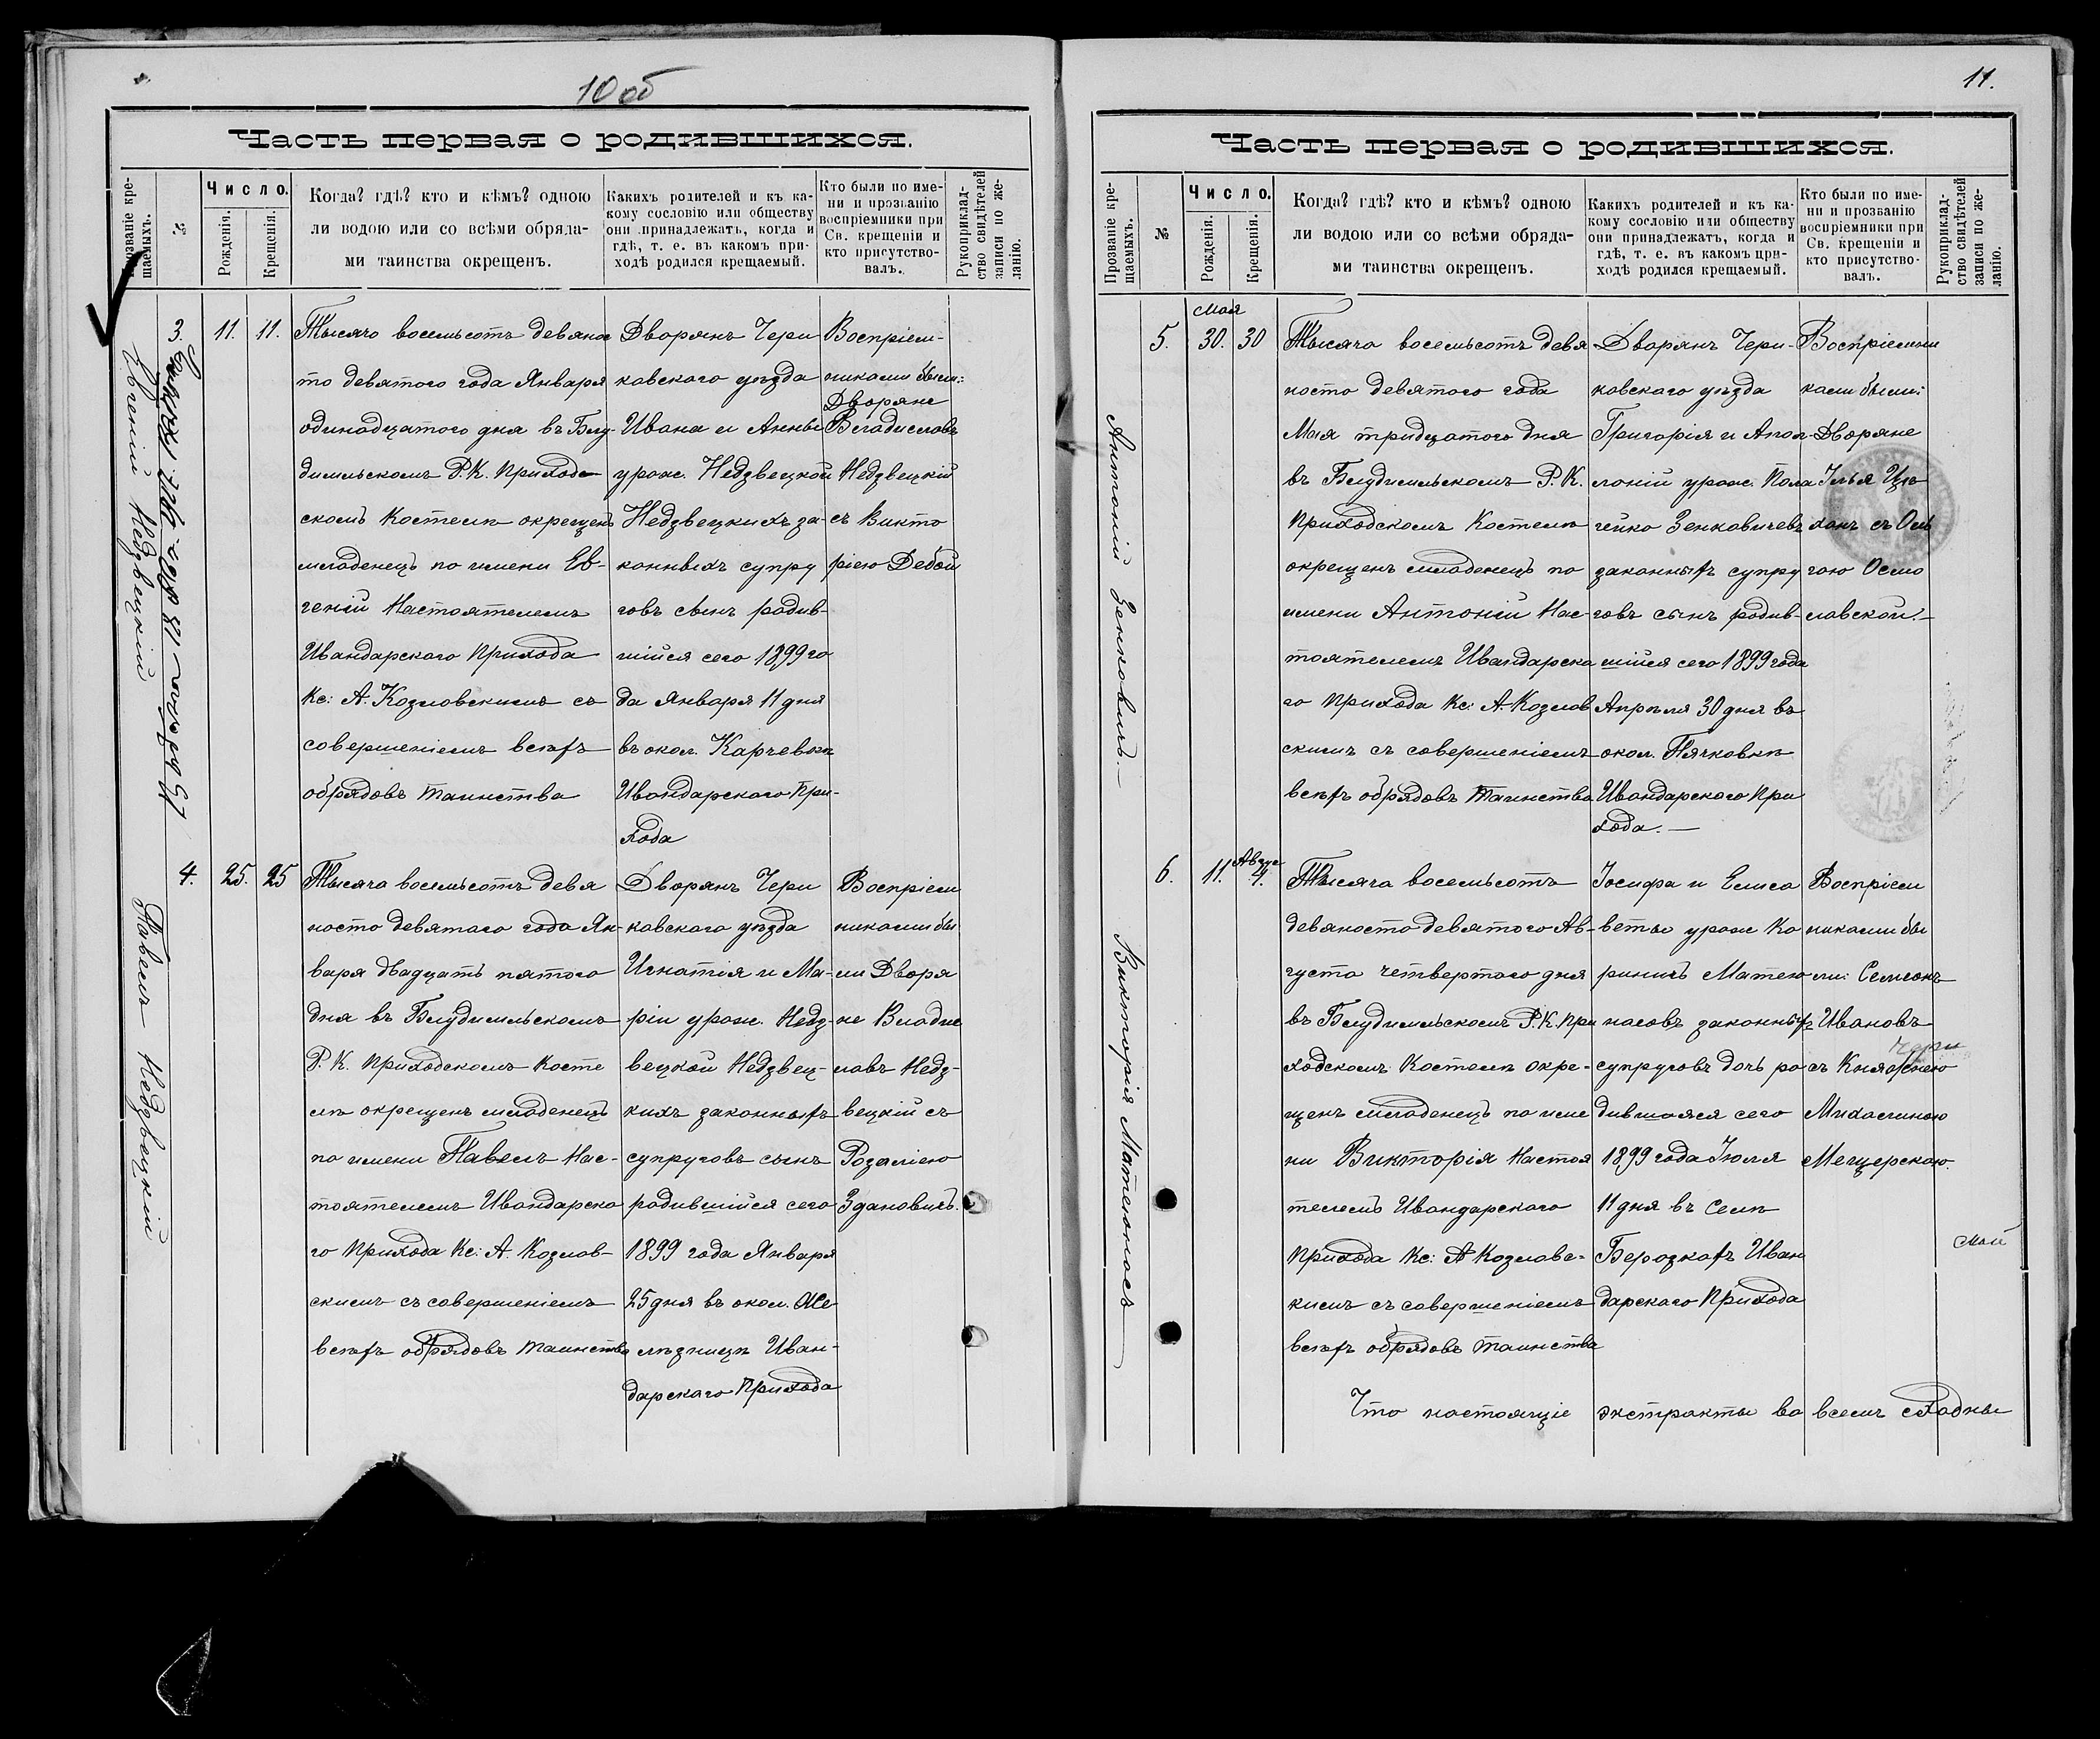 10 об
Часть первая о родившихся.
Прозваніе крещаемыхъ.
№
Число.
Рожденія.
Крещенія.
Когда? гдѣ? кто и кѣмъ? одною
ли водою или со всѣми обряда-
ми таинства окрещенъ.
Какихъ родителей и къ ка-
кому сословію или обществу
они принадлежатъ, когда и
гдѣ, т. е. въ какомъ при-
ходѣ родился крещаемый.
Кто были по име-
ни и прозванію
воспріемники при
Св. крещеніи и
кто присутство-
валъ.
Рукоприклад-
ство свидѣтелей
записи по же-
ланію.
Евгеній Недзвецкій
3.
11.
11.
Тысячо восемьсотъ девяно
то девятого года Января
одинадцатого дня въ Блу-
димльскомъ Р. К. Приход
скомъ Костелѣ окрещенъ
младенецъ по имени Ев-
геній Настоятелемъ
Ивандарского Прихода
Кс: А. Козловскимъ съ
совершеніемъ всѣхъ
обрядовъ таинства
Дворянъ Чери
ковского уѣзда
Ивана и Анны
урож. Недзвецкой
Недзвецкихъ за-
конныхъ супру
говъ сынъ родив-
шійся сего 1899 го
да Января 11 дня
въ окол. Карчевкѣ
Ивандарского При-
хода
Воспріем-
никоми были:
Дворяне
Владиславъ
Недзвецкій
съ Викто
ріею Дебой
Павелъ Недзвецкій
4.
25.
25
Тысяча восемьсотъ девя
носто девятаго года Ян-
варя двадцать пятого
дня въ Блудимльскомъ
Р. К. Приходскомъ Косте
лѣ окрещенъ младенецъ
по имени Павелъ Нас-
тоятелемъ Ивандарско
го Прихода Кс: А. Козлов-
скимъ съ совершеніемъ
всѣхъ обрядовъ таинства
Дворянъ Чери
ковского уѣзда
Игнатія и Ма-
ріи урож. Недз-
вецкой Недзвец-
кихъ законныхъ
супруговъ сынъ
родившійся сего
1899 года Января
25 дня въ окол. Же
лѣзницѣ Иван-
дарского Прихода
Воспріем
никоми бы
ли Дворя
не Владис
лавъ Недз-
вецкій съ
Розаліею
Здановичъ.
11.
Часть первая о родившихся.
Прозваніе кре-
щаемыхъ.
№
Число.
Рожденія.
Крещенія.
Когда? гдѣ? кто и кѣмъ? одною
ли водою или со всѣми обряда-
ми таинства окрещенъ.
Какихъ родителей и къ ка-
кому сословію или обществу
они принадлежатъ, когда и
гдѣ, т. е. въ какомъ при-
ходѣ родился крещаемый.
Кто были по име-
ни и прозванію
воспріемники при
Св. крещеніи и
кто присутство-
валъ.
Рукоприклад-
ство свидѣтелей
записи по же-
ланію.
Антоній Зенковичъ.—
5.
Мая
30.
30
Тысяча восемьсотъ девя
носто девятого года
Мая тридцатого дня
въ Блудимльскомъ Р. К.
Приходскомъ Костелѣ
окрещенъ младенецъ по
имени Антоній Нас-
тоятелемъ Ивандарска
го Прихода Кс: А. Козлов
скимъ съ совершеніемъ
всѣхъ обрядовъ таинства
Дворянъ Чери-
ковского уѣзда
Григорія и Апол-
лоніи урож. Пола
гейко Зенковичевъ
законныхъ супру
говъ сынъ родив-
шійся сего 1899 года
Апрѣля 30 дня въ
окол. Пячковкѣ
Ивандарского При
хода.—
Воспріемни
ками были:
Дворяне
Илья Цѣ
ханъ съ Оль
гою Осмо
ловской.—
Викторія Матеюнасъ
6.
11.
Авгус
4.
Тысяча восемьсотъ
девяносто девятого Ав-
густа четвертаго дня
въ Блудимльскомъ Р. К. При
ходскомъ Костелѣ окре-
щенъ младенецъ по име
ни Викторія Настоя
телемъ Ивандарского
Прихода Кс: А Козловс-
кимъ съ совершеніемъ
всѣхъ обрядовъ таинства
Іосифа и Елиса
веты урож Ко
ринисъ Матею
насовъ законныхъ
супруговъ дочь ро
дившаяся сего
1899 года Іюля
11 дня въ Селѣ
Берозкахъ Иван
дарского Прихода
Воспріем
никоми бы
ли: Семіонъ
Ивановъ
съ Княжною
Михалиною
Мещерскою.
май
Что настоящіе экстракты во всемъ сходны